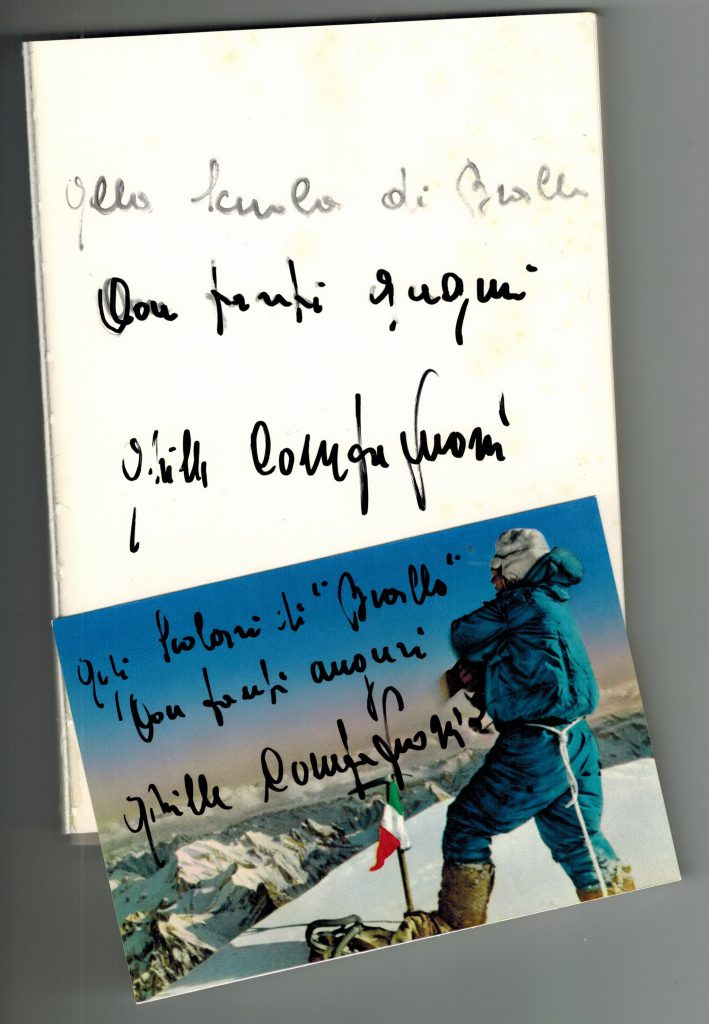 Alla Scuola di Brallo
Con tanti auguri
Achille Compagnoni
Agli Scolari di "Brallo"
Con tanti auguri
Achille Compagnoni